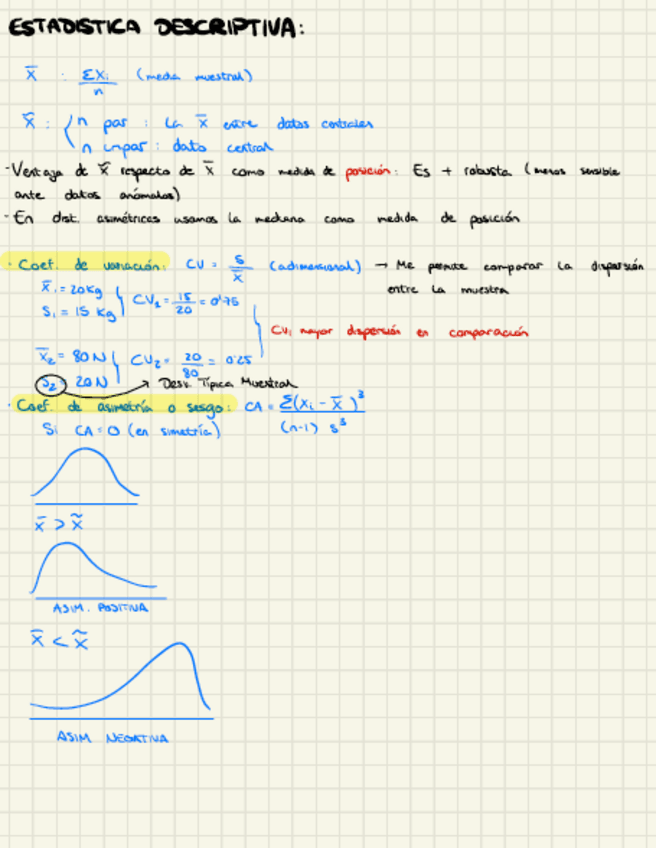 ESTADISTICA DESCRIPTIVA:
x̄ : Σxi / n (media muestral)
x̃ : { n par : La x̄ entre datos centrales
n impar : dato central
- Ventaja de x̃ respecto de x̄ como medida de posición: Es + robusta (menos sensible
ante datos anómalos)
- En dist. asimétricas usamos la mediana como medida de posición
· Coef. de variación: CV = s / x̄ (adimensional) → Me permite comparar la dispersión
entre la muestra
x̄₁ = 20 kg
S₁ = 15 kg } CV₁ = 15/20 = 0'75
CV₁ mayor dispersión en comparación
x̄₂ = 80 N } CV₂ = 20/80 = 0'25
S₂ = 20 N → Desv. Típica Muestral
· Coef. de asimetría o sesgo: CA = Σ(xi - x̄)³ / (n-1) s³
Si CA = 0 (en simetría)
x̄ > x̃
ASIM. POSITIVA
x̄ < x̃
ASIM NEGATIVA